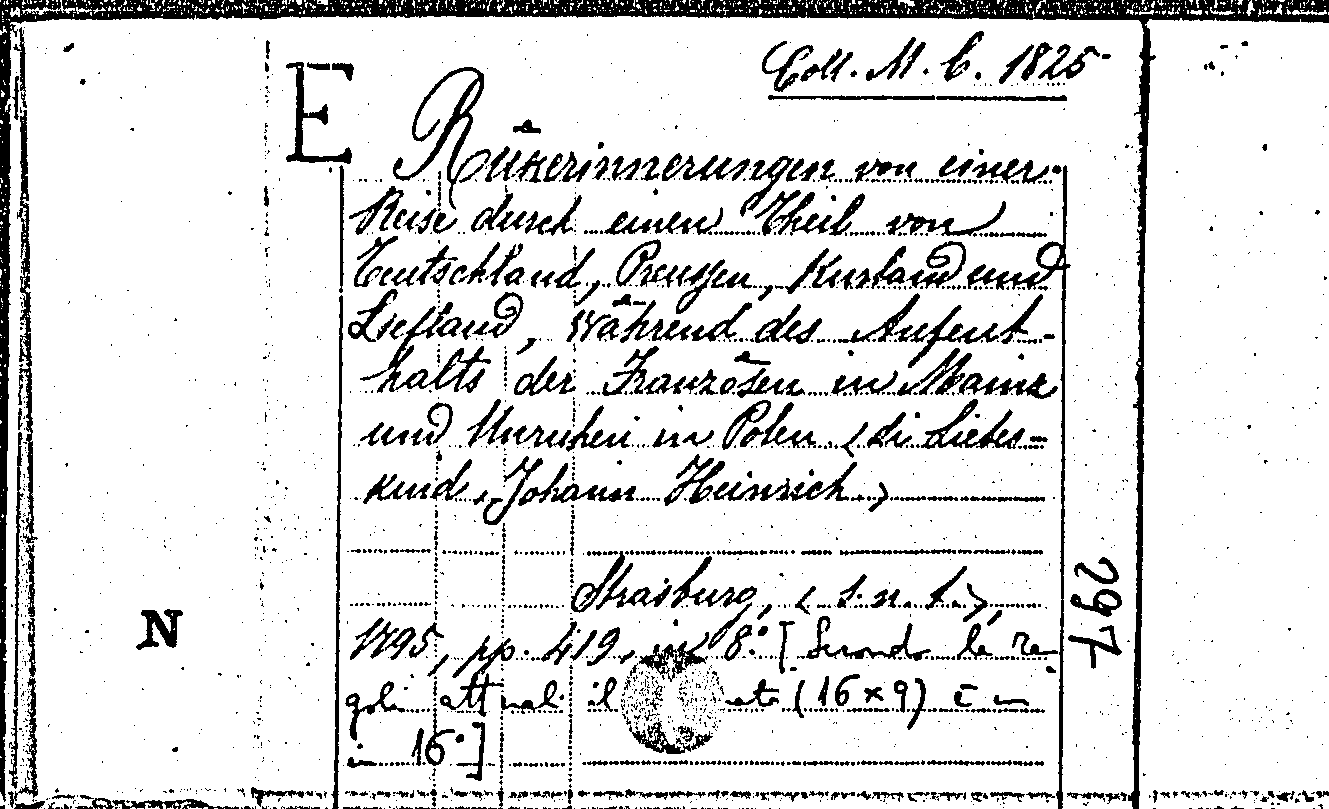 Coll. M. C. 1825
E
Rükerinnerungen von einer
Reise durch einen Theil von
Teutschland, Preussen, Kurland und
Liefland, während des Aufent-
halts der Französen in Mainz
und Unruhen in Polen (di Liebes-
kind, Johann Heinrich)
Strasburg, (s. n. t.),
1795, pp. 419, in 8.° [Secondo le re
gole attuali il (16 x 9) è un
in 16°]
297
N